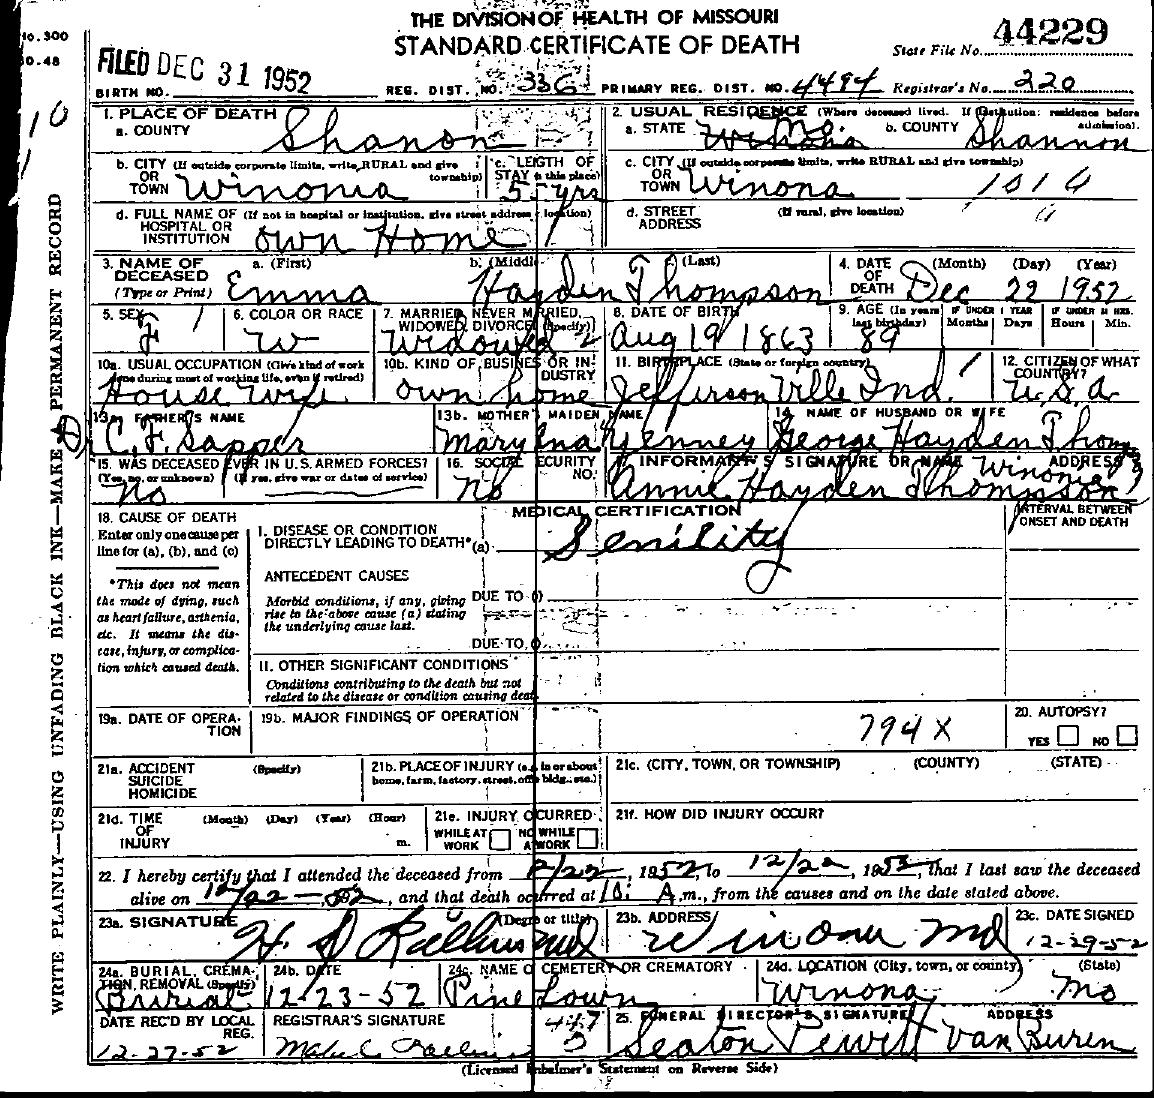 THE DIVISION OF HEALTH OF MISSOURI
STANDARD CERTIFICATE OF DEATH
State File No. 44229
FILED DEC 31 1952
BIRTH NO. REG. DIST. NO. 336 PRIMARY REG. DIST. NO. 4494 Registrar's No. 220
WRITE PLAINLY—USING UNFADING BLACK INK—MAKE A PERMANENT RECORD
1. PLACE OF DEATH
a. COUNTY Shanon
2. USUAL RESIDENCE (Where deceased lived. If institution: residence before admission).
a. STATE Mo. b. COUNTY Shannon
b. CITY (If outside corporate limits, write RURAL and give township) OR TOWN Winonia
c. LENGTH OF STAY (in this place) 55 yrs
c. CITY (If outside corporate limits, write RURAL and give township) OR TOWN Winona 1010
d. FULL NAME OF (If not in hospital or institution, give street address or location) HOSPITAL OR INSTITUTION Own Home
d. STREET ADDRESS (If rural, give location)
3. NAME OF DECEASED (Type or Print) a. (First) b. (Middle) c. (Last)
Emma Hayden Thompson
4. DATE OF DEATH (Month) (Day) (Year)
Dec 22 1952
5. SEX F
6. COLOR OR RACE W
7. MARRIED, NEVER MARRIED, WIDOWED, DIVORCED (Specify) Widowed 2
8. DATE OF BIRTH Aug 19 1863
9. AGE (In years last birthday) 89 IF UNDER 1 YEAR Months Days IF UNDER 24 HRS. Hours Min.
10a. USUAL OCCUPATION (Give kind of work done during most of working life, even if retired) House Wife
10b. KIND OF BUSINESS OR INDUSTRY Own home
11. BIRTHPLACE (State or foreign country) Jefferson Ville Ind.
12. CITIZEN OF WHAT COUNTRY? U.S.A.
13a. FATHER'S NAME Dr C. F. Sapper
13b. MOTHER'S MAIDEN NAME Mary Ina Yenney
14. NAME OF HUSBAND OR WIFE George Hayden Thompson
15. WAS DECEASED EVER IN U.S. ARMED FORCES? (Yes, no, or unknown) (If yes, give war or dates of service) No
16. SOCIAL SECURITY NO. No
INFORMANT'S SIGNATURE OR NAME ADDRESS
Annie Hayden Thompson Winona
18. CAUSE OF DEATH
Enter only one cause per line for (a), (b), and (c)
*This does not mean the mode of dying, such as heart failure, asthenia, etc. It means the disease, injury, or complication which caused death.
MEDICAL CERTIFICATION
INTERVAL BETWEEN ONSET AND DEATH
I. DISEASE OR CONDITION DIRECTLY LEADING TO DEATH* (a) Senility
ANTECEDENT CAUSES
Morbid conditions, if any, giving rise to the above cause (a) stating the underlying cause last.
DUE TO
DUE TO
II. OTHER SIGNIFICANT CONDITIONS
Conditions contributing to the death but not related to the disease or condition causing death
19a. DATE OF OPERATION
19b. MAJOR FINDINGS OF OPERATION
794X
20. AUTOPSY?
YES NO
21a. ACCIDENT SUICIDE HOMICIDE (Specify)
21b. PLACE OF INJURY (e.g., in or about home, farm, factory, street, office bldg., etc.)
21c. (CITY, TOWN, OR TOWNSHIP) (COUNTY) (STATE)
21d. TIME OF INJURY (Month) (Day) (Year) (Hour) m.
21e. INJURY OCCURRED WHILE AT WORK NOT WHILE AT WORK
21f. HOW DID INJURY OCCUR?
22. I hereby certify that I attended the deceased from 2/22, 1952, to 12/22, 1952, that I last saw the deceased
alive on 12/22-52, and that death occurred at A.m., from the causes and on the date stated above.
23a. SIGNATURE (Degree or title) H. D. Rollins MD
23b. ADDRESS Winona Mo
23c. DATE SIGNED 12-29-52
24a. BURIAL, CREMATION, REMOVAL (Specify) Burial
24b. DATE 12-23-52
24c. NAME OF CEMETERY OR CREMATORY Pine Lawn
24d. LOCATION (City, town, or county) (State) Winona, Mo
DATE REC'D BY LOCAL REG. 12-27-52
REGISTRAR'S SIGNATURE
25. FUNERAL DIRECTOR'S SIGNATURE ADDRESS
Seaton Pewitt Van Buren
(Licensed Embalmer's Statement on Reverse Side)